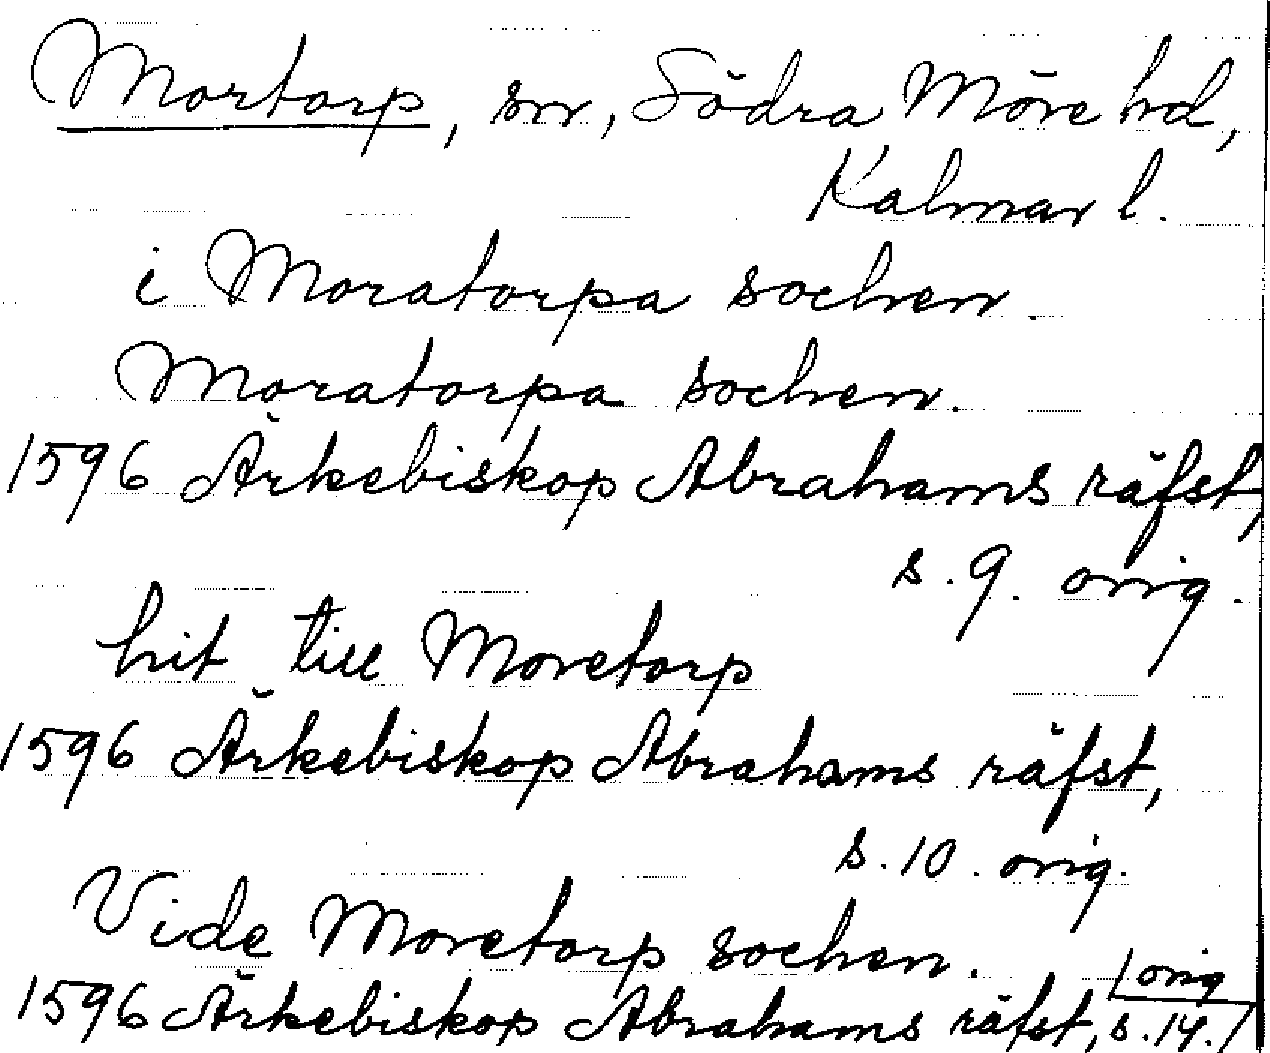 Mortorp, sn, Södra Möre hd,
Kalmar l.
i Moratorpa sochen.
Moratorpa sochen.
1596 Ärkebiskop Abrahams räfst,
s. 9. orig.
hit till Moretorp
1596 Ärkebiskop Abrahams räfst,
s. 10. orig.
Vide Moretorp sochen.
orig
1596 Ärkebiskop Abrahams räfst, s. 14.